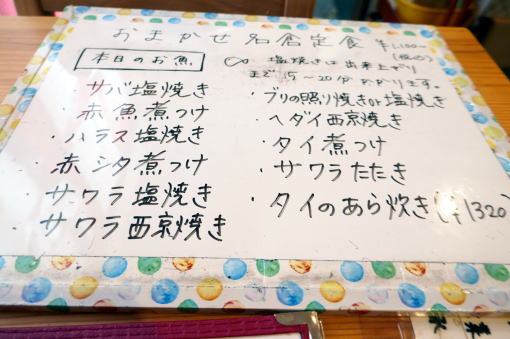 おまかせ名倉定食 ¥1,100-(税込)
本日のお魚
塩焼きは出来上がり
まで15〜20分かかります。
・サバ塩焼き
・赤魚煮つけ
・ハラス塩焼き
・赤シタ煮つけ
・サワラ塩焼き
・サワラ西京焼き
・ブリの照り焼きor塩焼き
・ヘダイ西京焼き
・タイ煮つけ
・サワラたたき
・タイのあら炊き(¥1320)